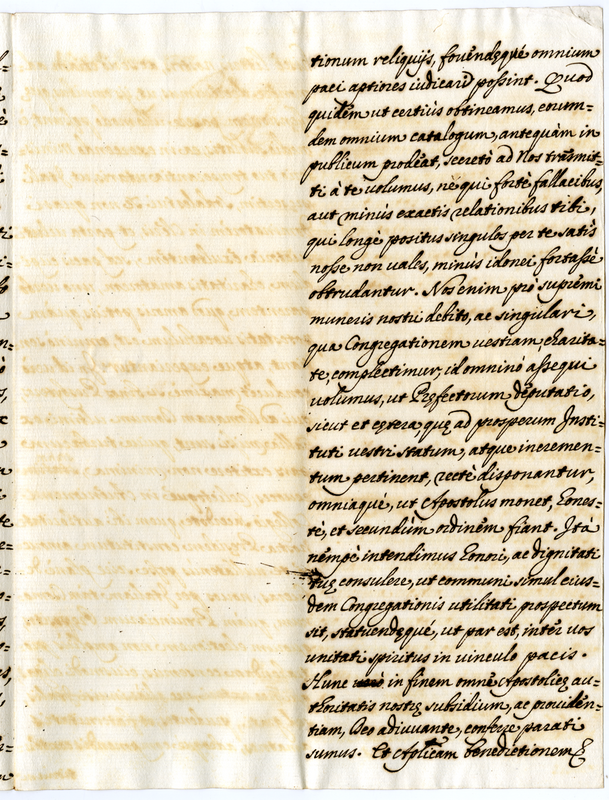 tionum reliquijs, fouendęqué omnium
paci aptiores iudicari possint. Quod
quidèm ut certiùs obtineamus, eorum=
dem omnium catalogum, antequàm in
publicum prodeat, secretò ad Nos trãsmit=
ti à te uolumus, nè qui fortè fallacibus,
aut minùs exactis relationibus tibi,
qui longè positus singulos per te satis
nosse non uales, minùs idonei fortassè
obtrudantur. Nos enim pro supremi
muneris nostri debito, ac singulari,
qua Congregationem uestram charita=
te, complectimur, id omninò assequi
uolumus, ut Pręfectorum deputatio,
sicut et cętera, quę ad prosperum Insti=
tuti uestri statum, atque incremen=
tum pertinent, rectè disponantur,
omniaqué, ut Apostolus monet, hones=
tè, et secundùm ordinem fiant. Ità
nempè intendimus honori, ac dignitati
tuę consulere, ut communi simul eius=
dem Congregationis utilitati prospectum
sit, statuendęqué, ut par est, intèr uos
unitati spiritus in uinculo pacis.
Hunc in finem omnẽ Apostolicę au=
thoritatis nostrę subsidium, ac prouiden=
tiam, Deo adiuuante, conferre parati
sumus. Et Aplicam benedictionem